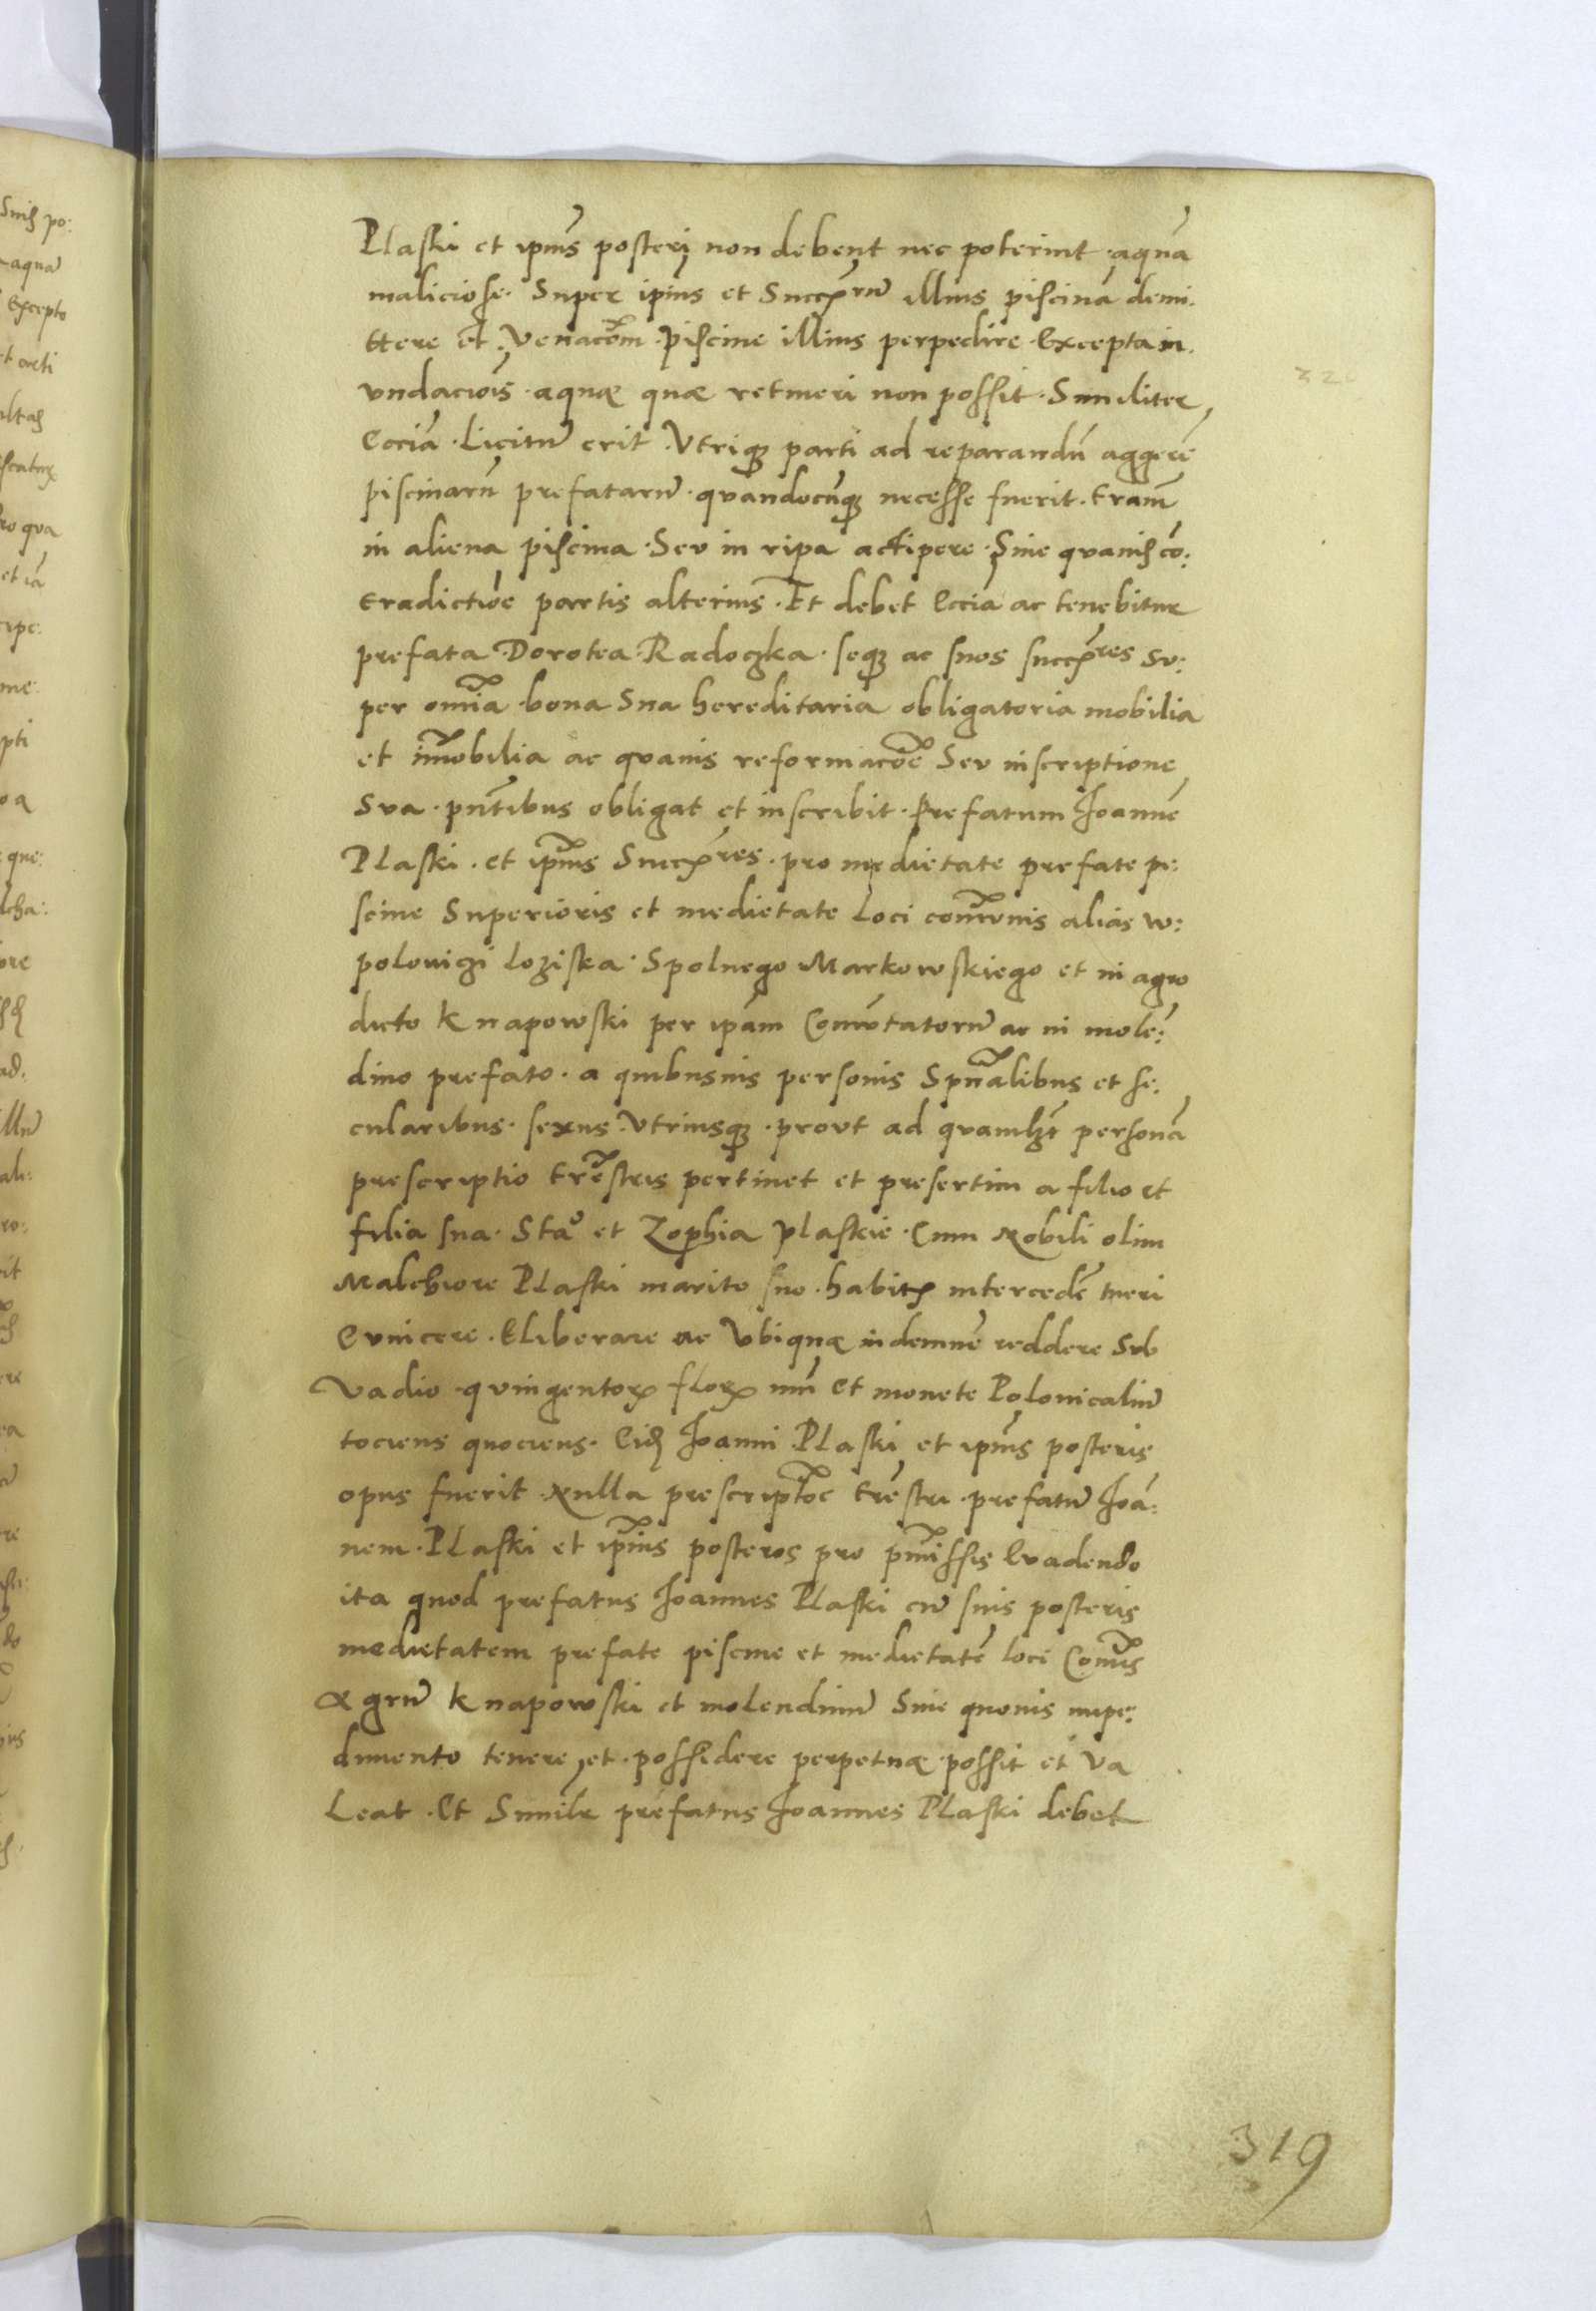 Plaski et ipius posteri non debent nec poterint aquā
maliciose Super ipius et Succᵣrū illius piscinā demi:
ttere et Venacōm piscine illius perpedire Excepta in:
undaciois aquæ quæ retineri non possit Similiter
Eciā Licitū erit Utriqȝ parti ad reparandū aggerē
piscinarū prefatarū quandocūqȝ necesse fuerit tram
in aliena piscina Seu in ripa accipere Sine quavis cō:
tradictiōe partis alterius Et debet Eciā ac tenebitur
prefata Dorotea Radoczka seqȝ ac suos succᵣres Su:
per omīa bona Sua hereditaria obligatoria mobilia
et im̄obilia ac quavis reformacōe Seu inscriptione
Sua pn̄tibus obligat et inscribit prefatum Joannē
Plaski et ipius Succᵣres pro medietate prefate pi:
scine Superioris et medietate Loci com̄unis alias w:
poloviczi loziska Spolnego Markowskiego et in agro
dicto Knapowski per ipam Com̄utatorū ac in molē:
dino prefato a quibusvis personis Spūalibus et se:
cularibus sexus Utriusqȝ prout ad quamlȝt personā
prescriptio trestris pertinet et presertim a filio et
filia sua Stāo et Zophia plaskie Cum Nobili olim
Malchiore Plaski marito suo habitᵣ intercedē tueri
Evincere Eliberare ac Ubiquæ indemnē reddere Sub
Vadio quingentoꝝ floꝝ nūi et monete Polonicaliū
tociens quociens Eidȝ Joanni Plaski et ipius posteris
opus fuerit Nulla prescriptōe trestri prefatū Joā:
nem Plaski et ipius posteros pro pmissis Evadendo
ita quod prefatus Joannes Plaski cū suis posteris
medietatem prefate piscine et medietatē loci Com̄is
Agrū Knapowski et molendinū Sine quovis impe:
dimento tenere et possidere perpetuæ possit et Va
Leat Et Similr prefatus Joannes Plaski debet
319